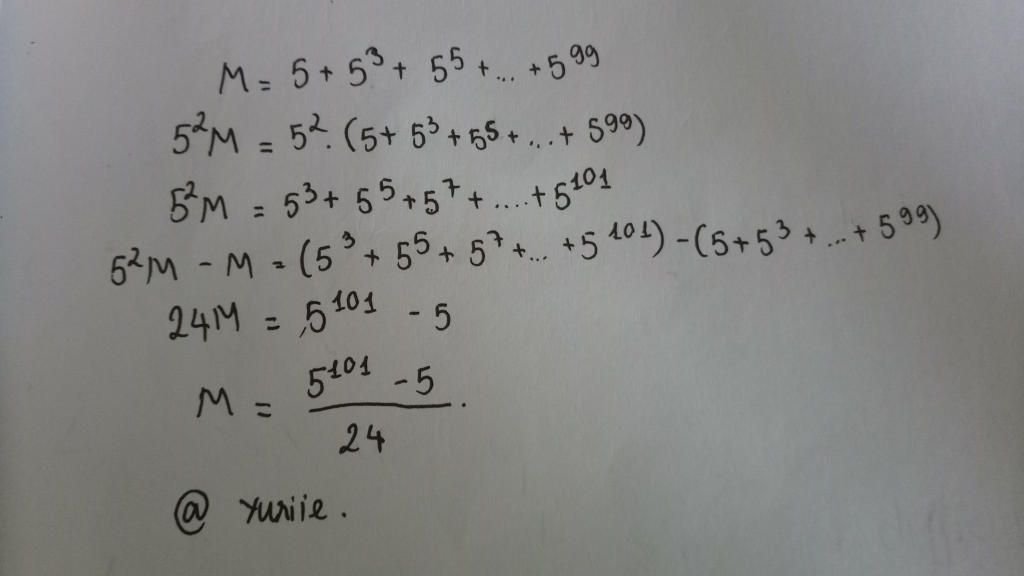 M = 5 + 5³ + 5⁵ + ... + 5⁹⁹
5²M = 5². (5 + 5³ + 5⁵ + ... + 5⁹⁹)
5²M = 5³ + 5⁵ + 5⁷ + .... + 5¹⁰¹
5²M - M = (5³ + 5⁵ + 5⁷ + ... + 5¹⁰¹) - (5 + 5³ + ... + 5⁹⁹)
24M = 5¹⁰¹ - 5
M = (5¹⁰¹ - 5) / 24 .
@ yuriie .